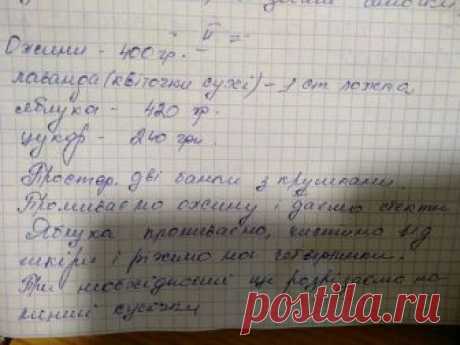 II
Ожини - 400 гр.
лаванда (квіточки сухі) - 1 ст ложка
яблука - 420 гр.
цукор - 240 грн.
дві банки з кружками.
Промиваємо ожину і даємо стекти
Яблука промиваємо, чистимо від
шкіри і ріжимо на четвертинки.
При необхідності ще розрізаємо на
менші кусочки
postila.ru